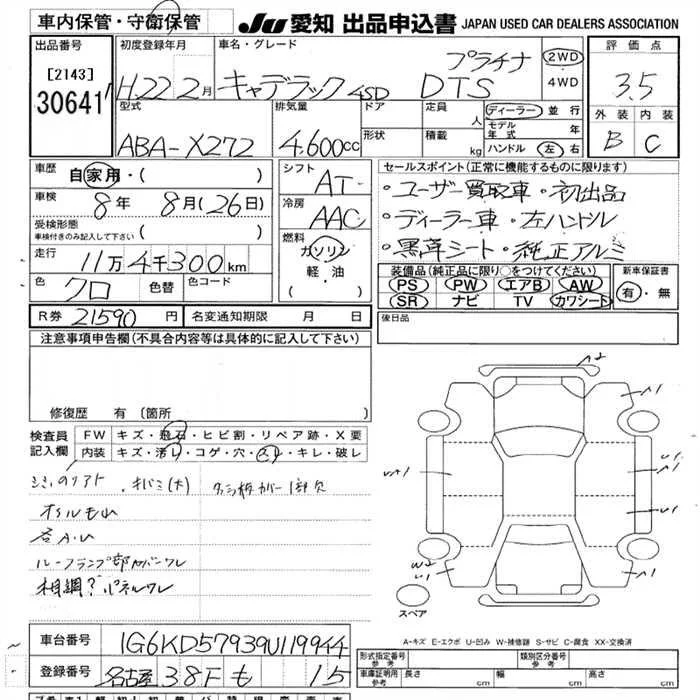 車内保管・守衛保管
JU 愛知 出品申込書 JAPAN USED CAR DEALERS ASSOCIATION
出品番号
[2143]
30641
初度登録年月
H.22 2月
車名・グレード
キャデラック 4SD プラチナ DTS
2WD
4WD
評価点
3.5
外装 内装
B C
型式
ABA-X272
排気量
4.600cc
ドア
形状
定員 人
積載 kg
ディーラー 並行
モデル年式 年
ハンドル 左 右
車歴 自家用・( )
車検 8年 8月(26日)
受検形態
車検付きのみ記入して下さい ( )
走行 11万4千300km
色 クロ 色替 色コード
シフト AT
冷房 AAC
燃料 ガソリン
軽・油
・( )
セールスポイント(正常に機能するものに限ります)
・ユーザー買取車・初出品
・ディーラー車・左ハンドル
・黒革シート・純正アルミ
装備品(純正品に限り○をつけてください) 新車保証書
PS PW エアB AW 有・無
SR ナビ TV カワシート
R券 21590円 名変通知期限 月 日
後日品
注意事項申告欄(不具合内容等は具体的に記入して下さい)
修復歴 有 〔箇所
検査員記入欄
FW キズ・飛石・ヒビ割・リペア跡・X要
内装 キズ・汚レ・コゲ・穴・スレ・キレ・破レ
キバミ(木)
ルーフランプ部カバーワレ
A2
A1
U1
U+1
U1
U1
W2
U1
A1
スペア
A-キズ E-エクボ U-凹み W-補修跡 S-サビ C-腐食 XX-交換済
車台番号 1G6KD57939U119944
登録番号 名古屋 38F も 15
形式指定番号 参考
類別区分番号 参考
車庫証明用 参考 長さ cm 幅 cm 高さ cm